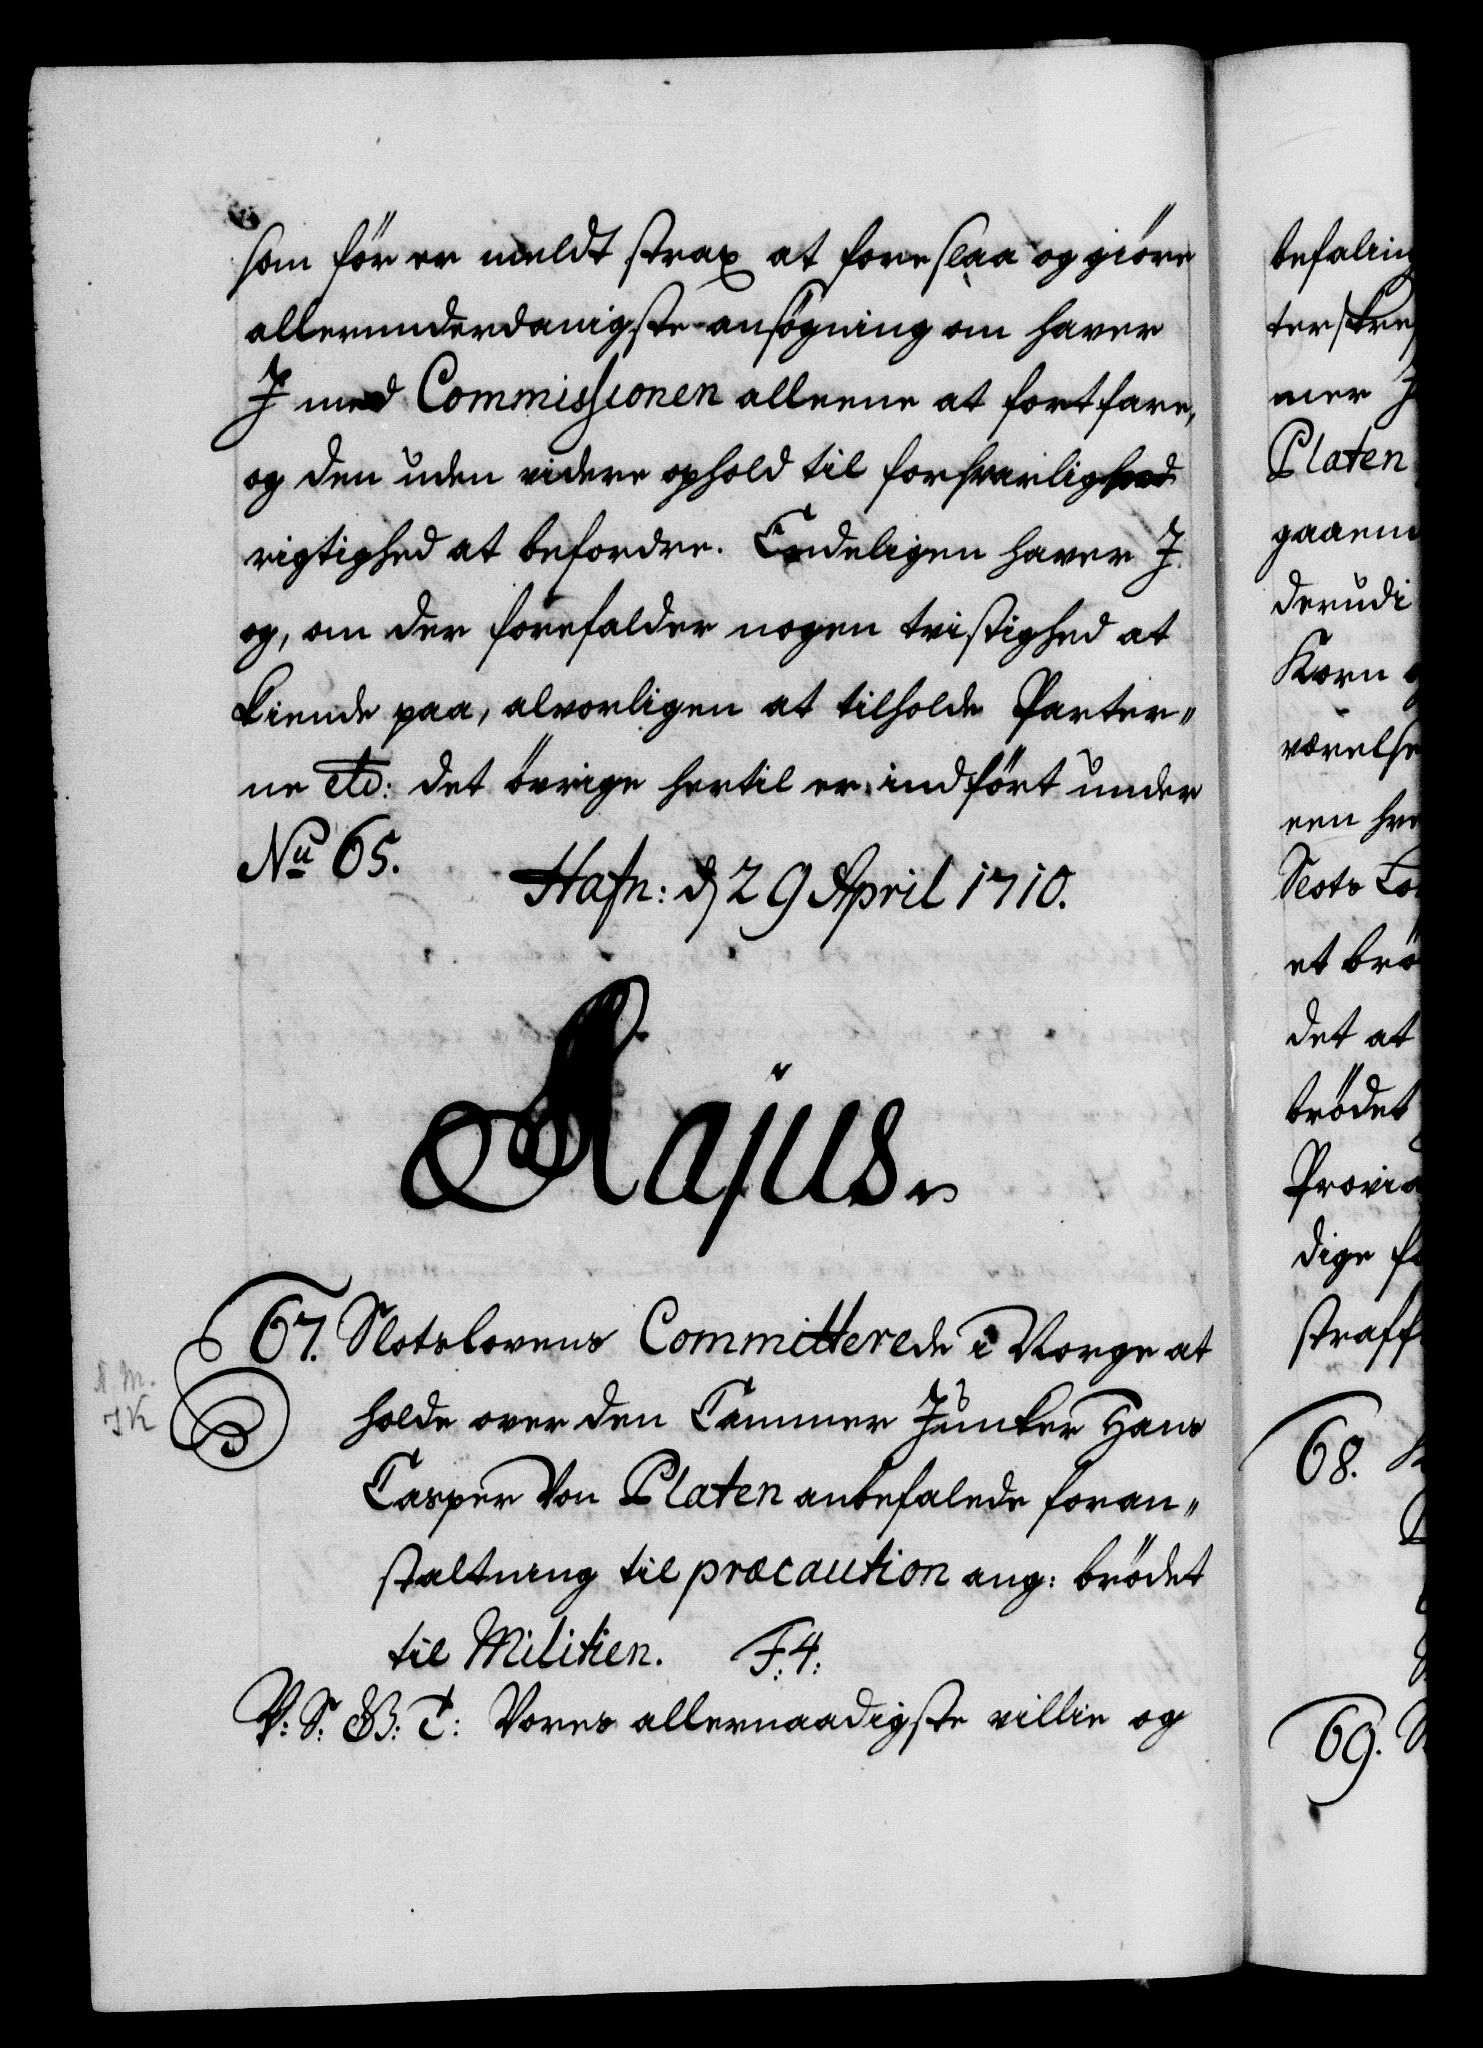 som för er meldt strax at foreslaa og giöre
allerunderdanigste ansögning om haver
J med Commissionen alleene at fortfare,
og den uden videre ophold til forsvarlighed
rigtighed at befordre. Endeligen haver J
og, om der forefalder nogen tvistighed at
kiende paa, alvorligen at tilholde Parter„
ne etc: det övrige hertil er indfört under
No 65.
Hafn: d 29 April 1710.
Majus.
67. Slotslovens Committerede i Norge at
holde over den Cammer Junker Hans
Casper Von Platen anbefalede foran„
staltning til præcaution ang: brödet
til Militien. F. 4:
V: S: G: T: Vores allernaadigste villie og
befaling
terskre
mer J
Platen
gaaend
derudi
Korn
værelse
een hve
Slots Lo
et brö
det at
brödet
Provia
dige fo
straff
68.
69. S